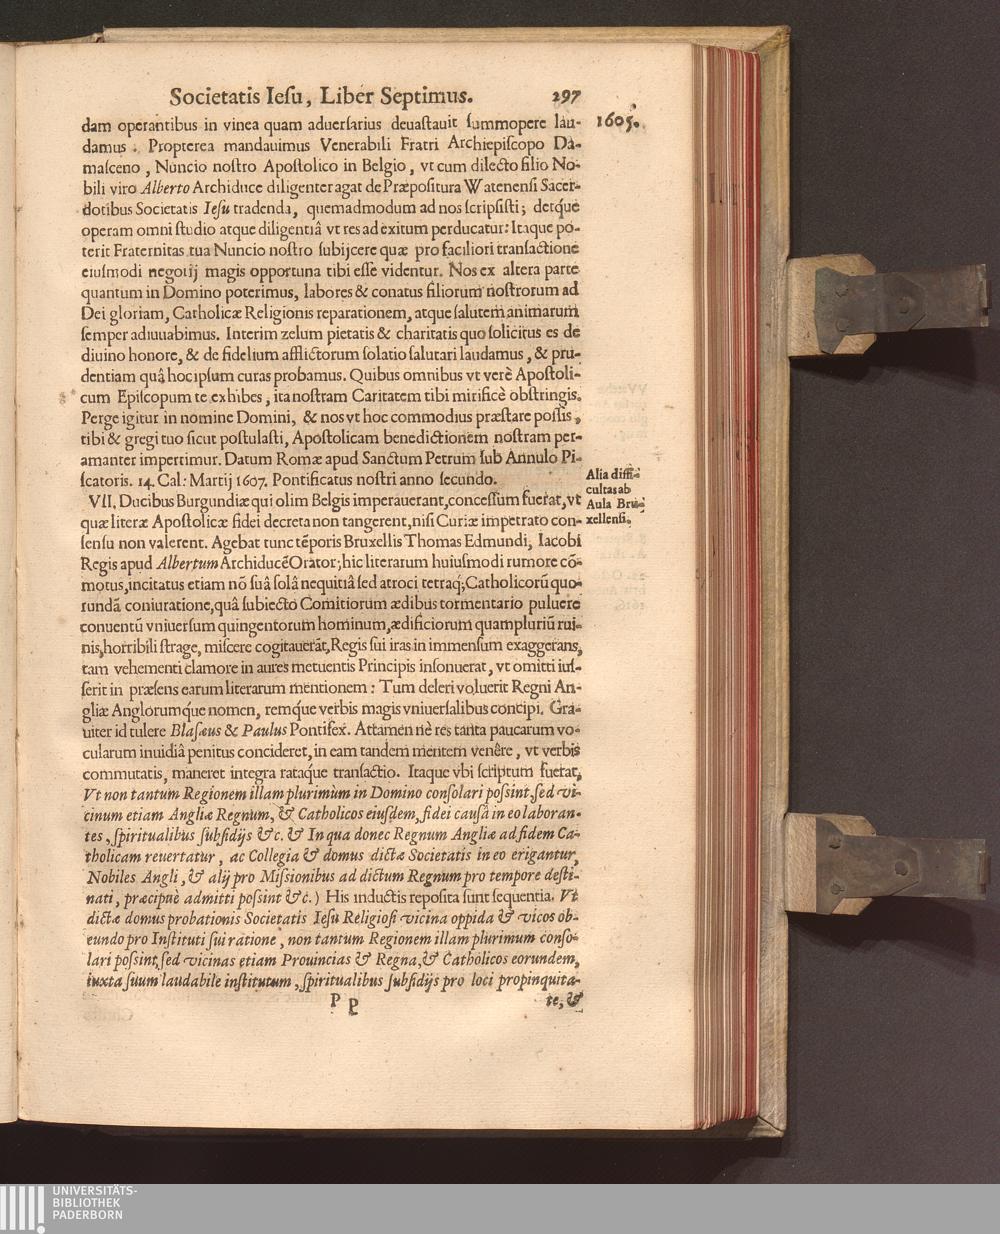 Societatis Iesu, Liber Septimus. 297
1605.
dam operantibus in vinea quam aduersarius deuastauit summopere lau-
damus. Propterea mandauimus Venerabili Fratri Archiepiscopo Da-
masceno, Nuncio nostro Apostolico in Belgio, vt cum dilecto filio No-
bili viro Alberto Archiduce diligenter agat de Præpositura Watenensi Sacer-
dotibus Societatis Iesu tradenda, quemadmodum ad nos scripsisti; detq́ue
operam omni studio atque diligentiâ vt res ad exitum perducatur: Itaque po-
terit Fraternitas tua Nuncio nostro subijcere quæ pro faciliori transactione
eiusmodi negotij magis opportuna tibi esse videntur. Nos ex altera parte
quantum in Domino poterimus, labores & conatus filiorum nostrorum ad
Dei gloriam, Catholicæ Religionis reparationem, atque salutem animarum
semper adiuuabimus. Interim zelum pietatis & charitatis quo solicitus es de
diuino honore, & de fidelium afflictorum solatio salutari laudamus, & pru-
dentiam quâ hoc ipsum curas probamus. Quibus omnibus vt verè Apostoli-
cum Episcopum te exhibes, ita nostram Caritatem tibi mirificè obstringis.
Perge igitur in nomine Domini, & nos vt hoc commodius præstare possis,
tibi & gregi tuo sicut postulasti, Apostolicam benedictionem nostram per-
amanter impertimur. Datum Romæ apud Sanctum Petrum sub Annulo Pi-
scatoris. 14. Cal: Martij 1607. Pontificatus nostri anno secundo.
Alia diffi-
cultas ab
Aula Bru-
xellensi.
VII. Ducibus Burgundiæ qui olim Belgis imperauerant, concessum fuerat, vt
quæ literæ Apostolicæ fidei decreta non tangerent, nisi Curiæ impetrato con-
sensu non valerent. Agebat tunc tẽporis Bruxellis Thomas Edmundi, Iacobi
Regis apud Albertum Archiducẽ Orator; hic literarum huiusmodi rumore cõ-
motus, incitatus etiam nõ suâ solâ nequitiâ sed atroci tetraq́; Catholicorũ quo-
rundã coniuratione, quâ subiecto Comitiorum ædibus tormentario puluere
conuentũ vniuersum quingentorum hominum, ædificiorum quampluriũ rui-
nis, horribili strage, miscere cogitauerãt, Regis sui iras in immensum exaggerans,
tam vehementi clamore in aures metuentis Principis insonuerat, vt omitti ius-
serit in præsens earum literarum mentionem: Tum deleri voluerit Regni An-
gliæ Anglorumq́ue nomen, remq́ue verbis magis vniuersalibus concipi. Gra-
uiter id tulere Blasæus & Paulus Pontifex. Attamen nè res tanta paucarum vo-
cularum inuidiâ penitus concideret, in eam tandem mentem venêre, vt verbis
commutatis, maneret integra rataq́ue transactio. Itaque vbi scriptum fuerat,
Vt non tantum Regionem illam plurimum in Domino consolari possint, sed vi-
cinum etiam Angliæ Regnum, & Catholicos eiusdem, fidei causâ in eo laboran-
tes, spiritualibus subsidijs &c. & In qua donec Regnum Angliæ ad fidem Ca-
tholicam reuertatur, ac Collegia & domus dictæ Societatis in eo erigantur,
Nobiles Angli, & alij pro Missionibus ad dictum Regnum pro tempore desti-
nati, præcipuè admitti possint &c.) His inductis reposita sunt sequentia. Vt
dictæ domus probationis Societatis Iesu Religiosi vicina oppida & vicos ob-
eundo pro Instituti sui ratione, non tantum Regionem illam plurimum conso-
lari possint, sed vicinas etiam Prouincias & Regna, & Catholicos eorundem,
iuxta suum laudabile institutum, spiritualibus subsidijs pro loci propinquita-
P p te, &
UNIVERSITÄTS-
BIBLIOTHEK
PADERBORN